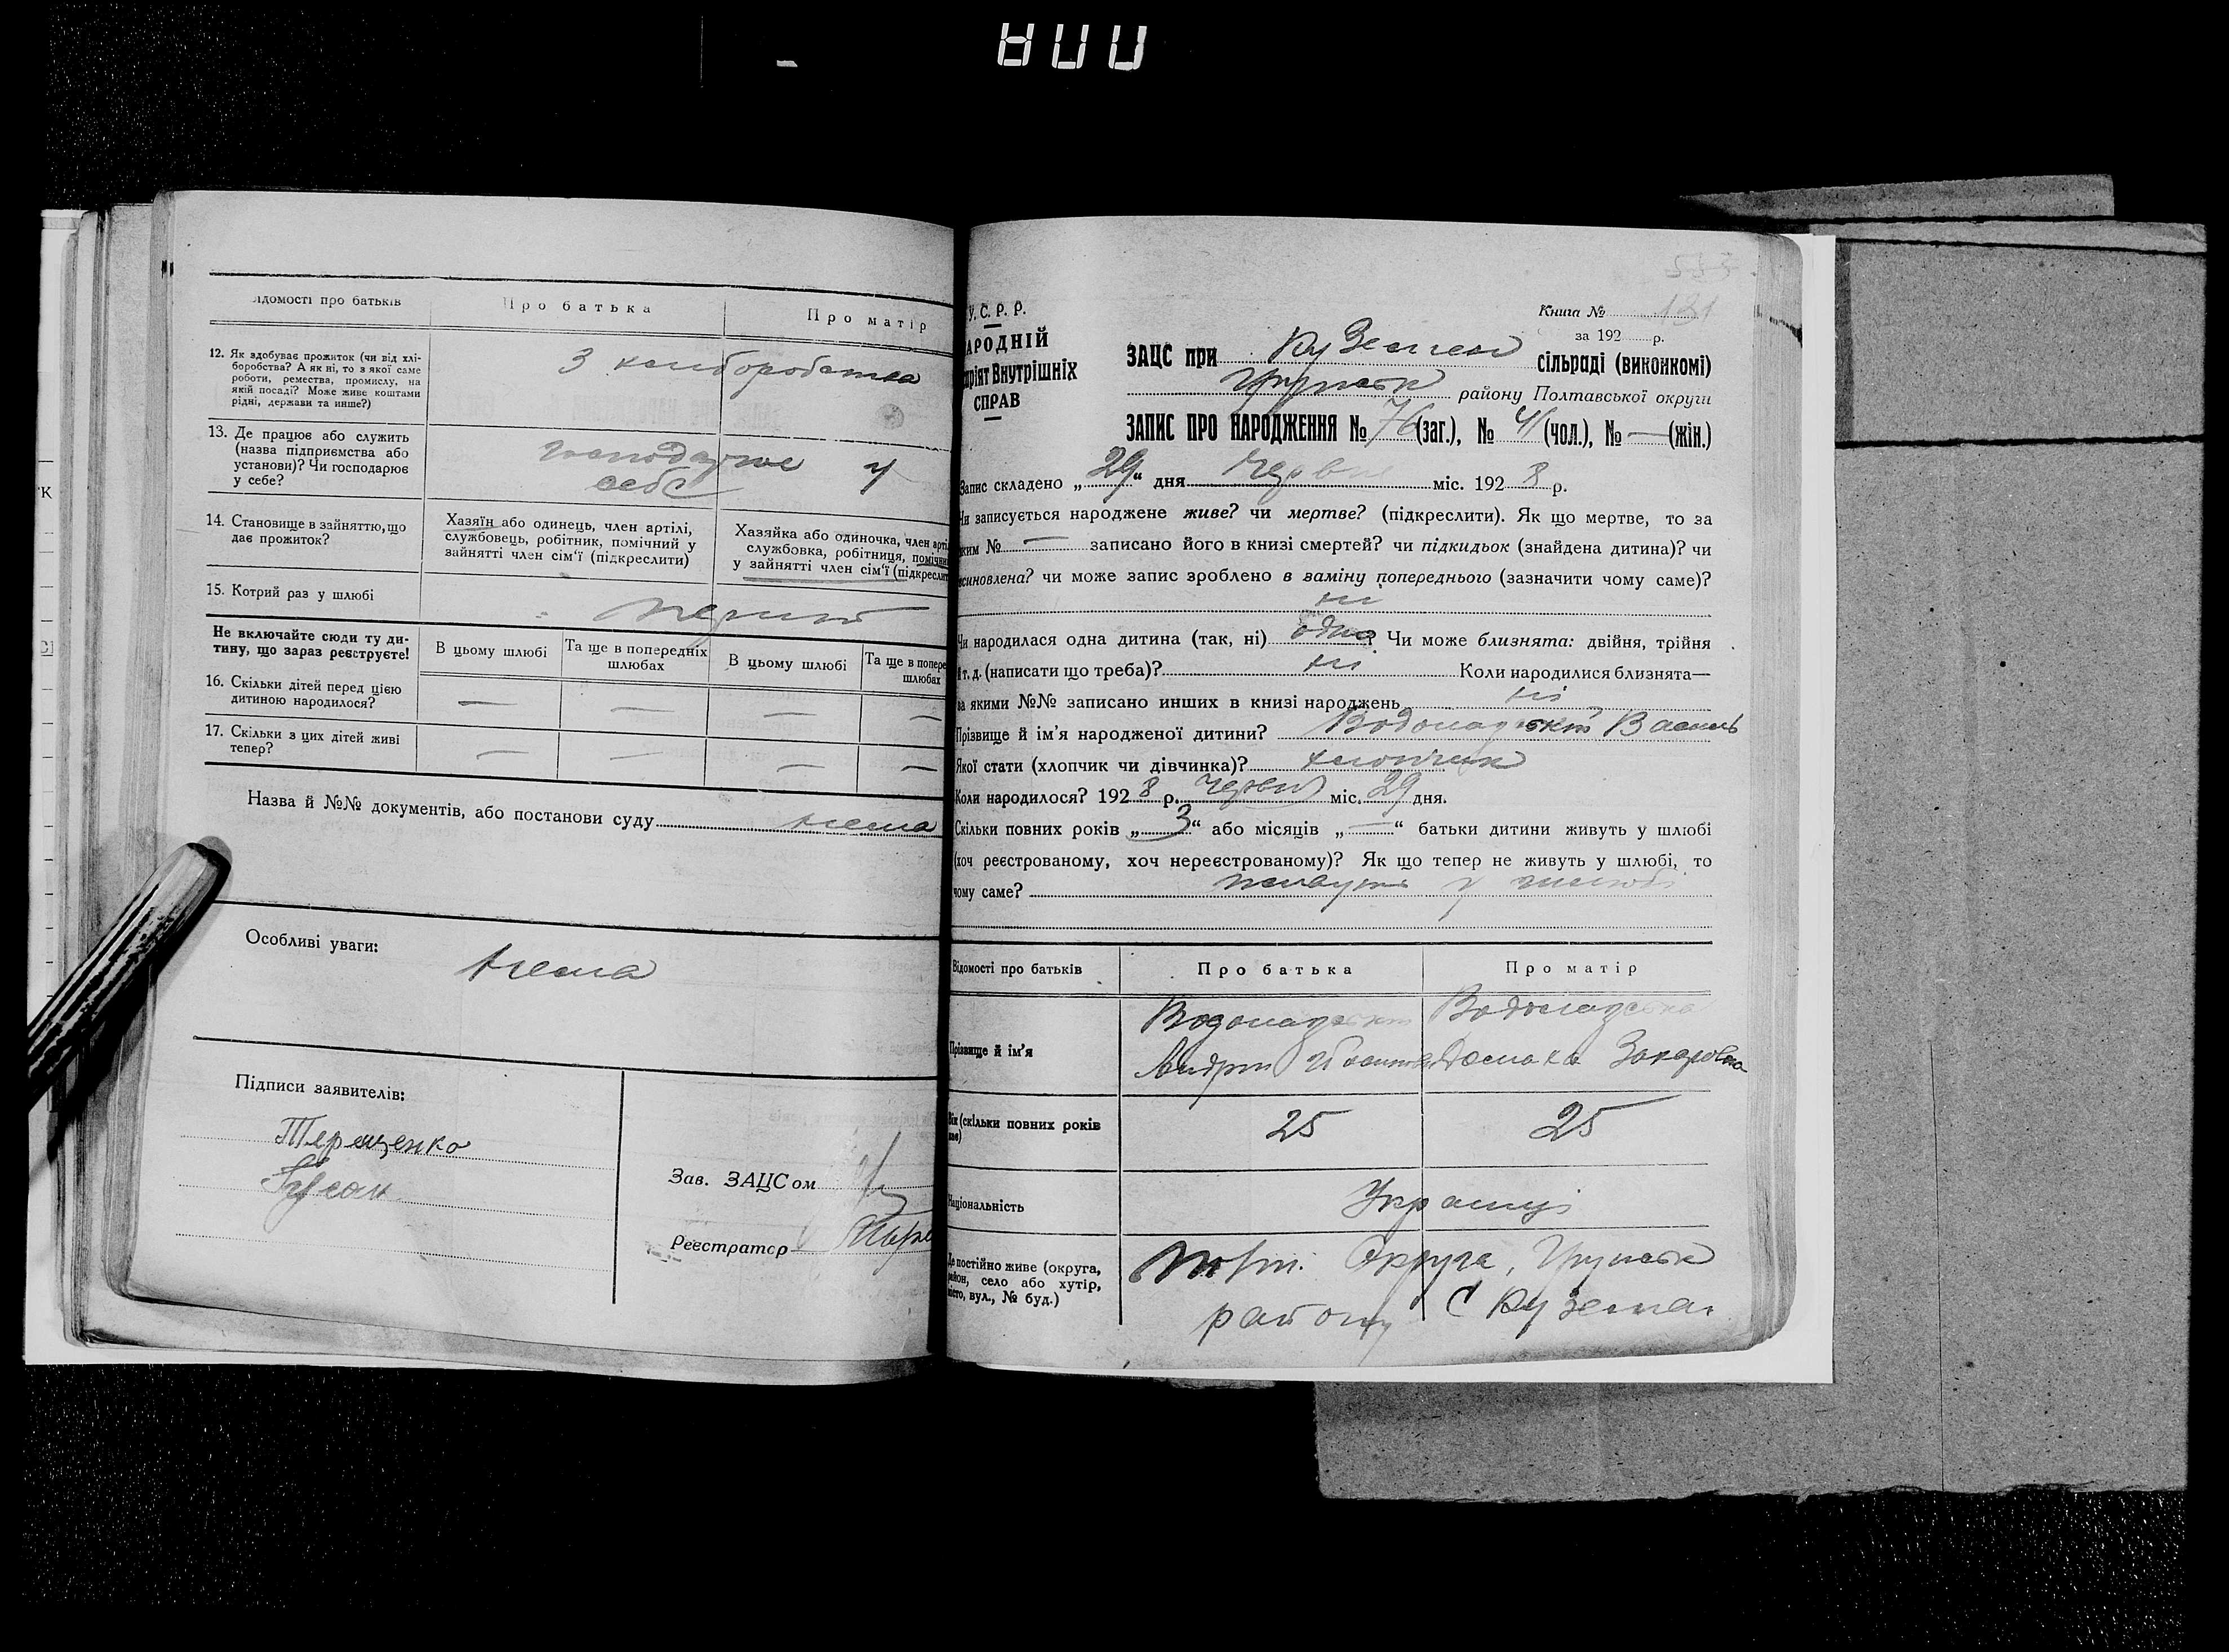 Відомості про батьків
Про батька
Про матір
12. Як здобуває прожиток (чи від хлі-
боробства? А як ні, то з якої саме
роботи, ремества, промислу, на
якій посаді? Може живе коштами
рідні, держави та инше?)
З хліборобства
13. Де працює або служить
(назва підприємства або
установи)? Чи господарює
у себе?
господарює у
себе
14. Становище в зайняттю, що
дає прожиток?
Хазяїн або одинець, член артілі,
службовець, робітник, помічний у
зайнятті член сім'ї (підкреслити)
Хазяйка або одиночка, член арті
службовка, робітниця, помічни
у зайнятті член сім'ї (підкресли
15. Котрий раз у шлюбі
Не включайте сюди ту ди-
тину, що зараз реєструєте!
В цьому шлюбі
Та ще в попередніх
шлюбах
В цьому шлюбі
Та ще в попере
шлюбах
16. Скільки дітей перед цією
дитиною народилося?
— — — —
17. Скільки з цих дітей живі
тепер?
— — — —
Назва й №№ документів, або постанови суду нема
Особливі уваги:
нема
Підписи заявителів:
Терещенко
Зав. ЗАЦСом
Реєстратор
У. С. Р. Р.
АРОДНІЙ
Внутрішніх
СПРАВ
Книга № 131
за 192 р.
ЗАЦС при Куземен сільраді (виконкомі)
Груньськ району Полтавської округи
ЗАПИС ПРО НАРОДЖЕННЯ № 76 (заг.), № 41 (чол.), № — (жін.)
Запис складено „29“ дня Червня міс. 1928 р.
Чи записується народжене живе? чи мертве? (підкреслити). Як що мертве, то за
яким № — записано його в книзі смертей? чи підкидьок (знайдена дитина)? чи
усиновлена? чи може запис зроблено в заміну попереднього (зазначити чому саме)?
ні
Чи народилася одна дитина (так, ні) одна? Чи може близнята: двійня, трійня
і т. д. (написати що треба)? ні Коли народилися близнята—
за якими №№ записано инших в книзі народжень ні
Прізвище й ім'я народженої дитини? Водопадський Василь
Якої стати (хлопчик чи дівчинка)? хлопчик
Коли народилося? 1928 р. Червня міс. 29 дня.
Скільки повних років „3“ або місяців „—“ батьки дитини живуть у шлюбі
(хоч реєстрованому, хоч нереєстрованому)? Як що тепер не живуть у шлюбі, то
чому саме? у шлюбі
Відомості про батьків
Про батька
Про матір
Прізвище й ім'я
Водопадський
Водопадська
Андрій
Захаровна
Вік (скільки повних років
має)
25
25
Національність
Українці
Де постійно живе (округа,
район, село або хутір,
місто, вул., № буд.)
Полт. Округа, Груньськ
району С Куземен